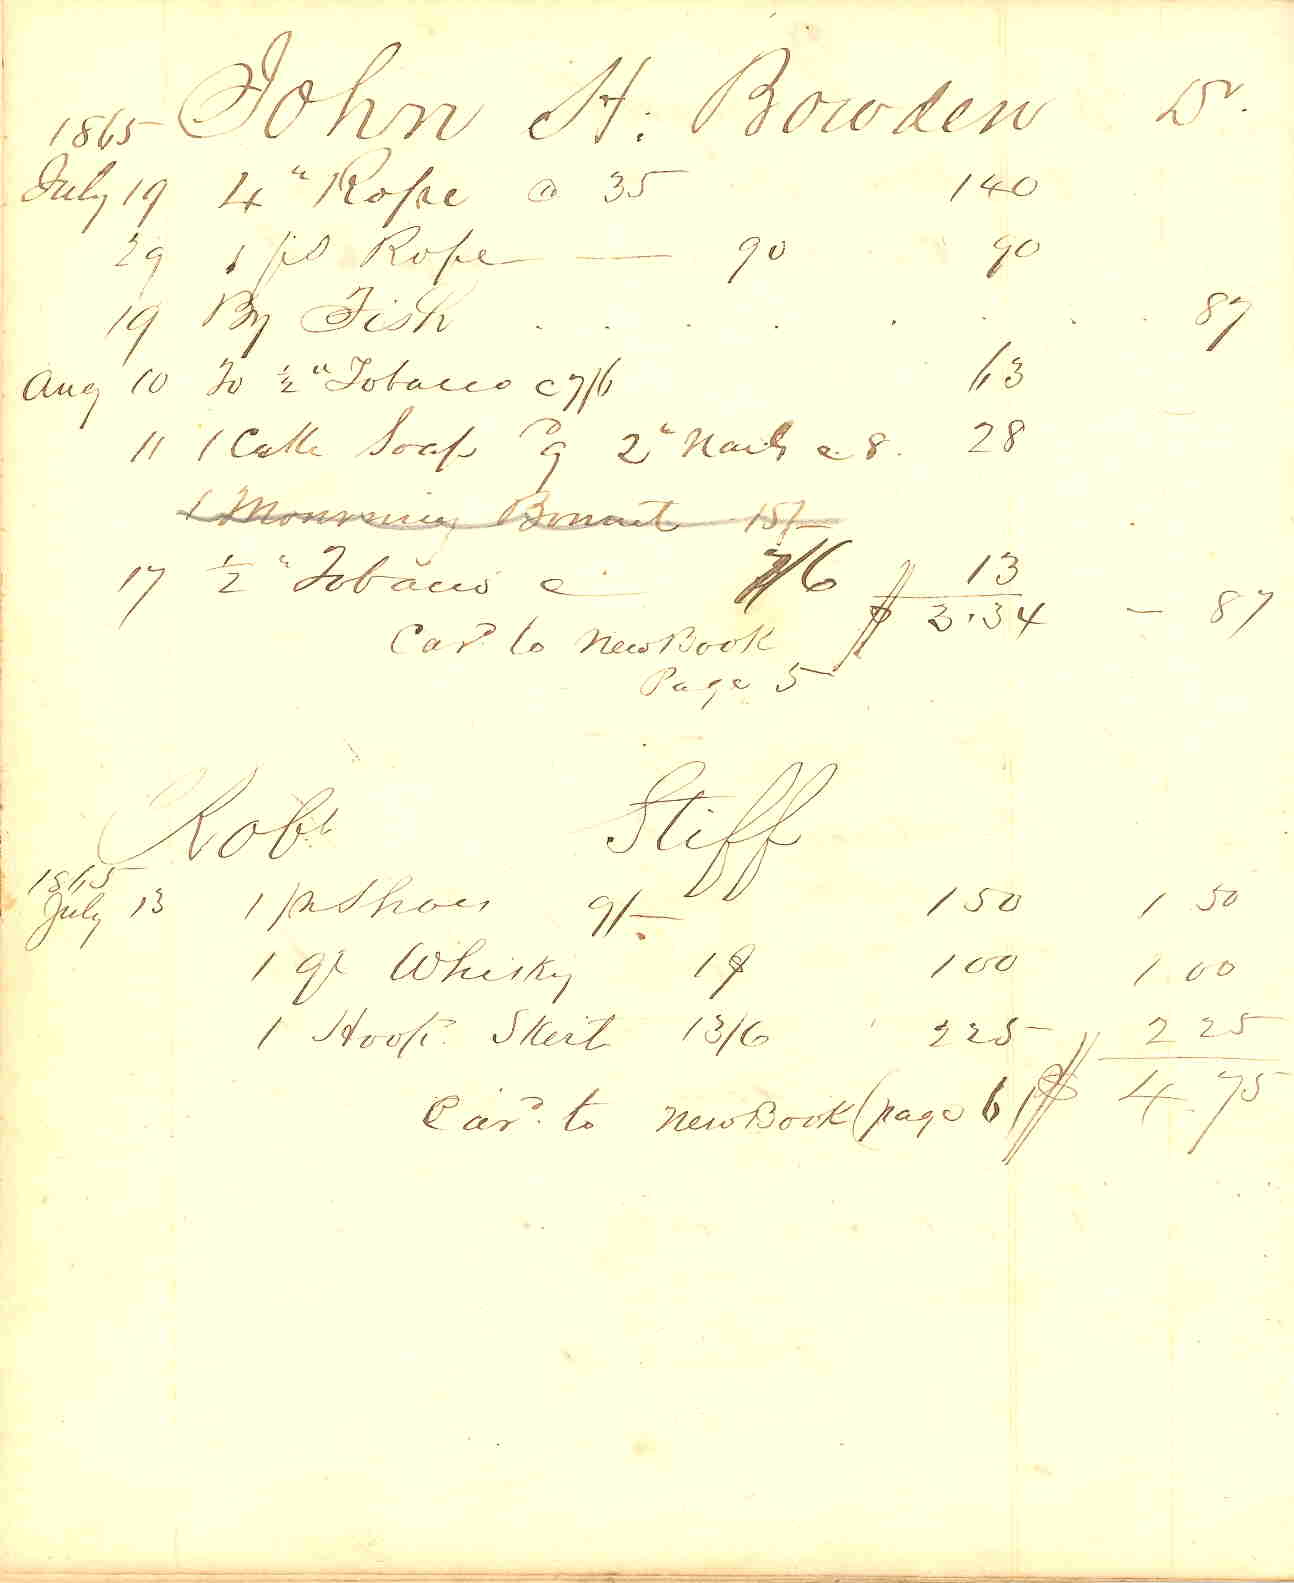 1865 John H. Bowden Dr.
July 19 4 " Rope @ 35 140
29 1 ps Rope — 90 90
19 By Fish . . . . . . . . 87
Aug 10 To ½ " Tobacco @ 7/6 63
11 1 Cake Soap 2 " Nails @ 8. 28
1 Mourning Bonnet 15/-
17 ½ " Tobacco @ 7/6 13
$ 3.34 — 87
Card. to New Book
Page 5
Robt Stiff
1865
July 13 1 pr Shoes 9/- 1 50 1 50
1 qt Whisky 1 00 1 00
1 Hoop Skert 13/6 2 25 2 25
Card. to New Book (page 6) $ 4.75